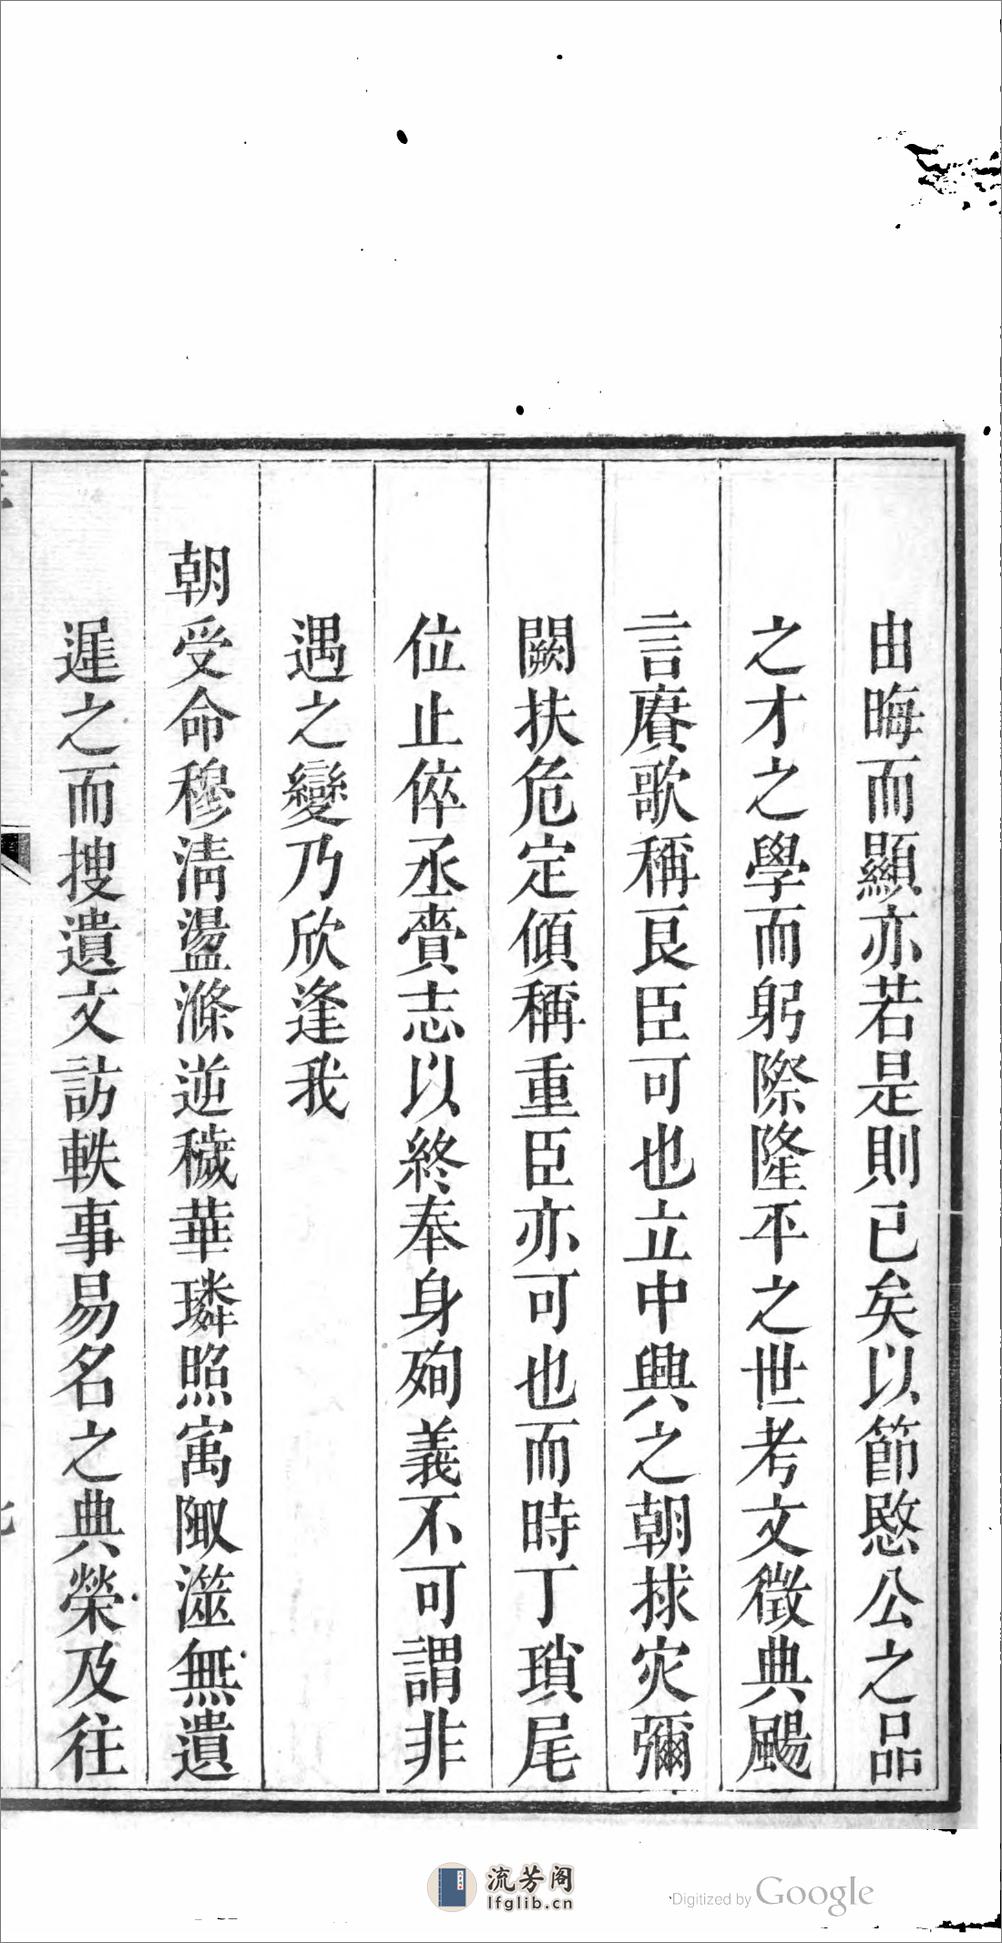 由晦而顯亦若是則已矣以節愍公之品
之才之學而躬際隆平之世考文徵典颺
言賡歌稱良臣可也立中興之朝捄灾彌
闕扶危定傾稱重臣亦可也而時丁瑣尾
位止倅丞賫志以終奉身殉義不可謂非
遇之變乃欣逢我
朝受命穆清盪滌逆穢華璘照寓陬澨無遺
遲之而搜遺文訪軼事易名之典榮及往
流芳阁
lfglib.cn
Digitized by Google